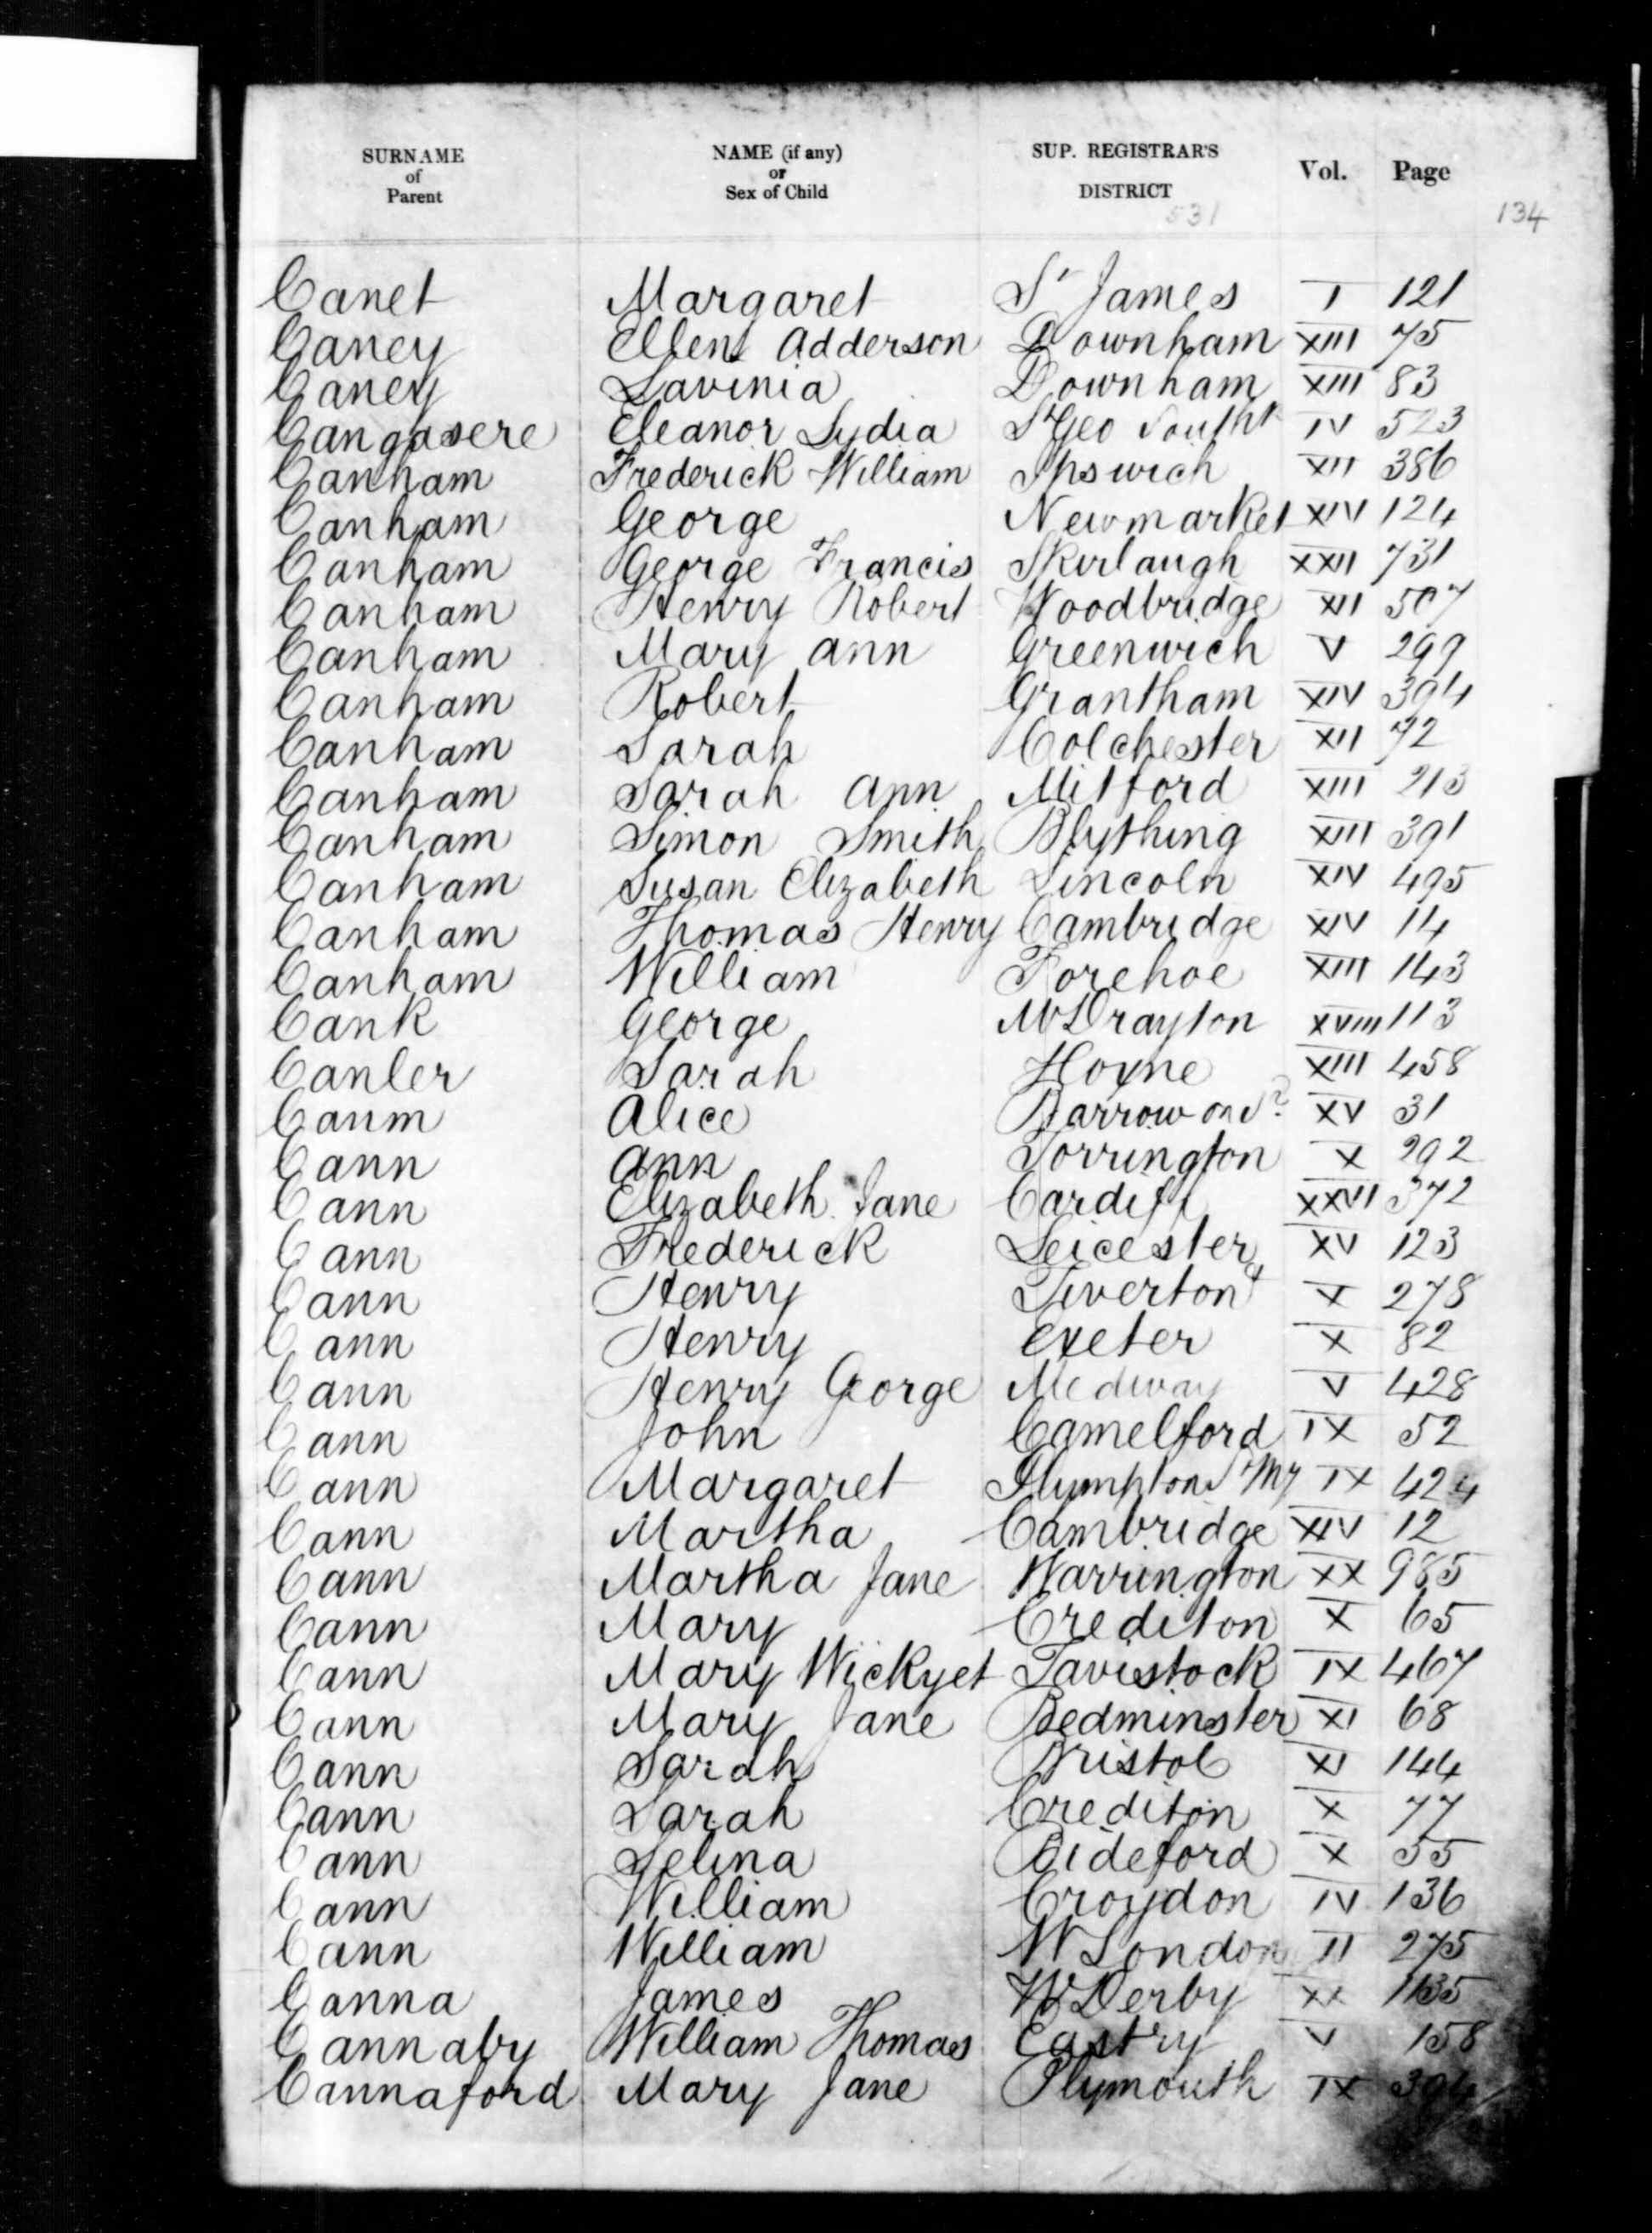 SURNAME of Parent NAME (if any) or Sex of Child SUP. REGISTRAR'S DISTRICT Vol. Page
531 134
Canet Margaret St James I 121
Caney Ellen Adderson Downham XIII 75
Caney Lavinia Downham XIII 83
Cangasere Eleanor Lydia St Geo South IV 523
Canham Frederick William Ipswich XII 386
Canham George Newmarket XIV 124
Canham George Francis Skirlaugh XXII 731
Canham Henry Robert Woodbridge XII 507
Canham Mary Ann Greenwich V 299
Canham Robert Grantham XIV 394
Canham Sarah Colchester XII 72
Canham Sarah Ann Mitford XIII 213
Canham Simon Smith Blything XIII 391
Canham Susan Elizabeth Lincoln XIV 495
Canham Thomas Henry Cambridge XIV 14
Canham William Forehoe XIII 143
Cank George M Drayton XVIII 113
Canler Sarah Hoxne XIII 458
Canm Alice Barrow on S? XV 31
Cann Ann Torrington X 292
Cann Elizabeth Jane Cardiff XXVI 372
Cann Frederick Leicester XV 123
Cann Henry Tiverton X 278
Cann Henry Exeter X 82
Cann Henry George Medway V 428
Cann John Camelford IX 52
Cann Margaret Plympton S My IX 424
Cann Martha Cambridge XIV 12
Cann Martha Jane Warrington XX 985
Cann Mary Crediton X 65
Cann Mary Wickyet Tavistock IX 467
Cann Mary Jane Bedminster XI 68
Cann Sarah Bristol XI 144
Cann Sarah Crediton X 77
Cann Selina Bideford X 55
Cann William Croydon IV 136
Cann William W London II 275
Canna James W Derby XX 1135
Cannaby William Thomas Eastry V 158
Cannaford Mary Jane Plymouth IX 394